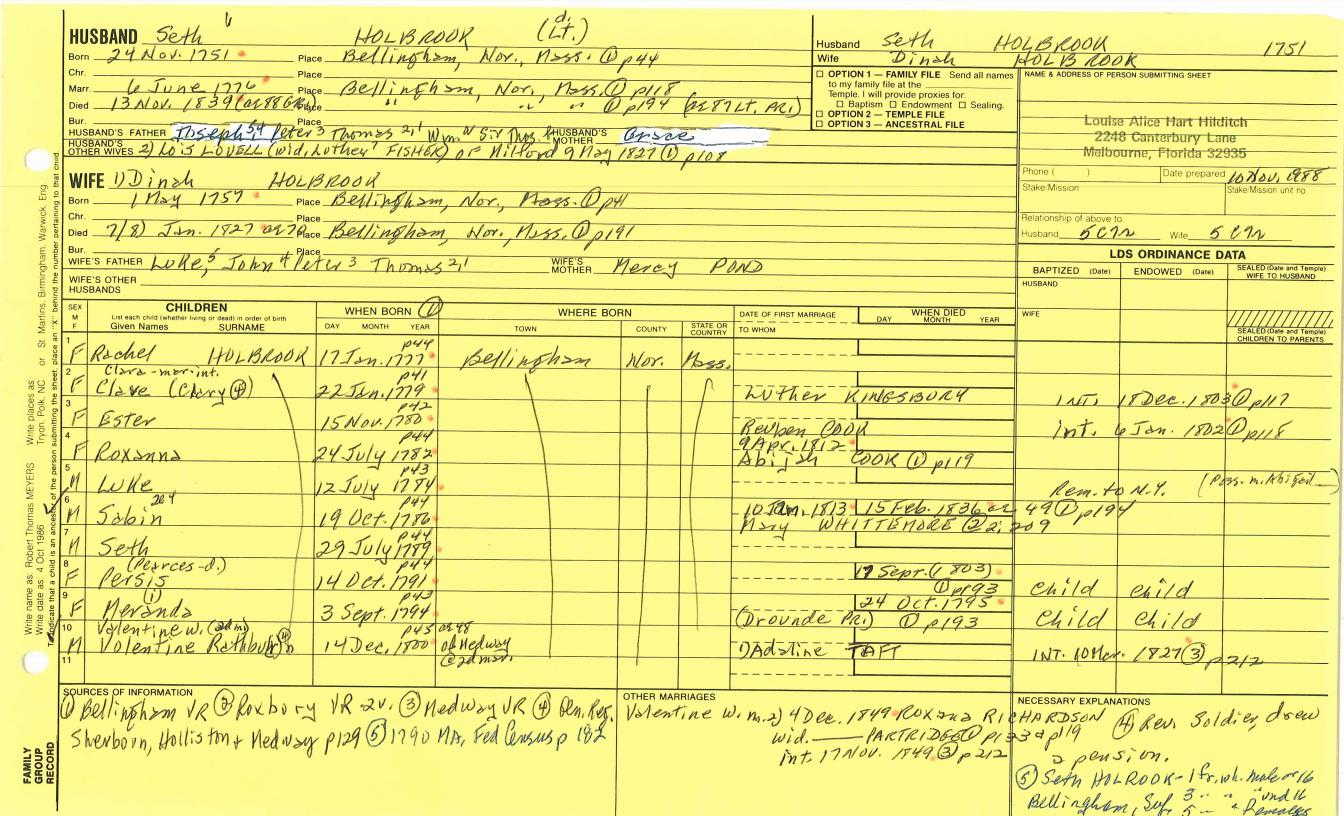 HUSBAND Seth HOLBROOK (Lt.)
Born 24 Nov. 1751 Place Bellingham, Nor, Mass. ① p44
Chr. Place
Marr. 6 June 1776 Place Bellingham, Nor., Mass. ① p118
Died 13 Nov. 1839 (ae 88 GRI) Place " " " ① p194 (ae 87 Lt. PRI)
Bur. Place
HUSBAND'S FATHER Joseph 5,4 Peter 3 Thomas 2,1 HUSBAND'S MOTHER Grace
HUSBAND'S OTHER WIVES 2) Lois LOVELL (wid. Luther FISHER) of Milford 9 May 1827 ① p108
WIFE 1) Dinah HOLBROOK
Born 1 May 1757 Place Bellingham, Nor., Mass. ① p41
Chr. Place
Died 7/8) Jan. 1827 ae 70 Place Bellingham, Nor., Mass. ① p191
Bur. Place
WIFE'S FATHER Luke, 5 John 4 Peter 3 Thomas 2,1 WIFE'S MOTHER Mercy POND
WIFE'S OTHER HUSBANDS
Husband Seth HOLBROOK 1751
Wife Dinah HOLBROOK
OPTION 1 — FAMILY FILE Send all names
to my family file at the
Temple. I will provide proxies for:
Baptism Endowment Sealing.
OPTION 2 — TEMPLE FILE
OPTION 3 — ANCESTRAL FILE
NAME & ADDRESS OF PERSON SUBMITTING SHEET
Louise Alice Hart Hilditch
2248 Canterbury Lane
Melbourne, Florida 32935
Phone ( ) Date prepared 10 Nov, 1988
Stake/Mission Stake/Mission unit no.
Relationship of above to:
Husband 5C7R Wife 5C7R
LDS ORDINANCE DATA
BAPTIZED (Date) ENDOWED (Date) SEALED (Date and Temple) WIFE TO HUSBAND
HUSBAND
WIFE
SEALED (Date and Temple) CHILDREN TO PARENTS
SEX M F
CHILDREN
List each child (whether living or dead) in order of birth
Given Names SURNAME
WHEN BORN ①
DAY MONTH YEAR
WHERE BORN
TOWN COUNTY STATE OR COUNTRY
DATE OF FIRST MARRIAGE
TO WHOM
WHEN DIED
DAY MONTH YEAR
1 p44
F Rachel HOLBROOK 17 Jan. 1777 Bellingham Nor. Mass.
2 Clara - mar. int. p41
F Clave (Clary ④) 22 Jan. 1779 Luther KINGSBURY INT. 18 Dec. 1803 ① p117
3 p42
F Ester 15 Nov. 1780 Reuben COOK int. 6 Jan. 1802 ① p118
4 p44 9 Apr. 1812
F Roxanna 24 July 1782 Abijah COOK ① p119
5 p43
M Luke 12 July 1784 Rem. to N.Y. (Poss. m. Abigail
6 p44 10 Jan. 1813 15 Feb. 1836 ae 49 ① p194
M Sabin 19 Oct. 1786 Mary WHITTEMORE ② 2:209
7 p44
M Seth 29 July 1789
8 (Pearces-d.) p44 17 Sept. (1803)
F Persis 14 Oct. 1791 ① p193 Child Child
9 p43 24 Oct. 1795
F Meranda 3 Sept. 1794 (Drounde PRI) ① p193 Child Child
10 Valentine W. (2d m) p45 ae 48
M Volentine Rathburn 14 Dec. 1800 of Medway @ 2d mar. 1) Adaline TAFT INT. 10 Mar. 1827 ③ p212
11
SOURCES OF INFORMATION
① Bellingham VR ② Roxbury VR 2v. ③ Medway VR ④ Gen. Reg.
Sherborn, Holliston & Medway p129 ⑤ 1790 MA, Fed Census p 182
OTHER MARRIAGES
Valentine W. m. 2) 4 Dec. 1849 Roxana RICHARDSON
wid. —— PARTRIDGE ① p123 & p119
int. 17 Nov. 1849 ③ p212
NECESSARY EXPLANATIONS
④ Rev. Soldier, drew
a pension.
⑤ Seth HOLROOK - 1 fr. wh. male or 16
Bellingham, Suf. 3 " " " und 16
5 " " Females
Write name as: Robert Thomas MEYERS Write places as: Tryon, Polk, NC or St. Martins, Birmingham, Warwick, Eng.
Write date as: 4 Oct 1986
To indicate that a child is an ancestor of the person submitting the sheet, place an "X" behind the number pertaining to that child
FAMILY GROUP RECORD